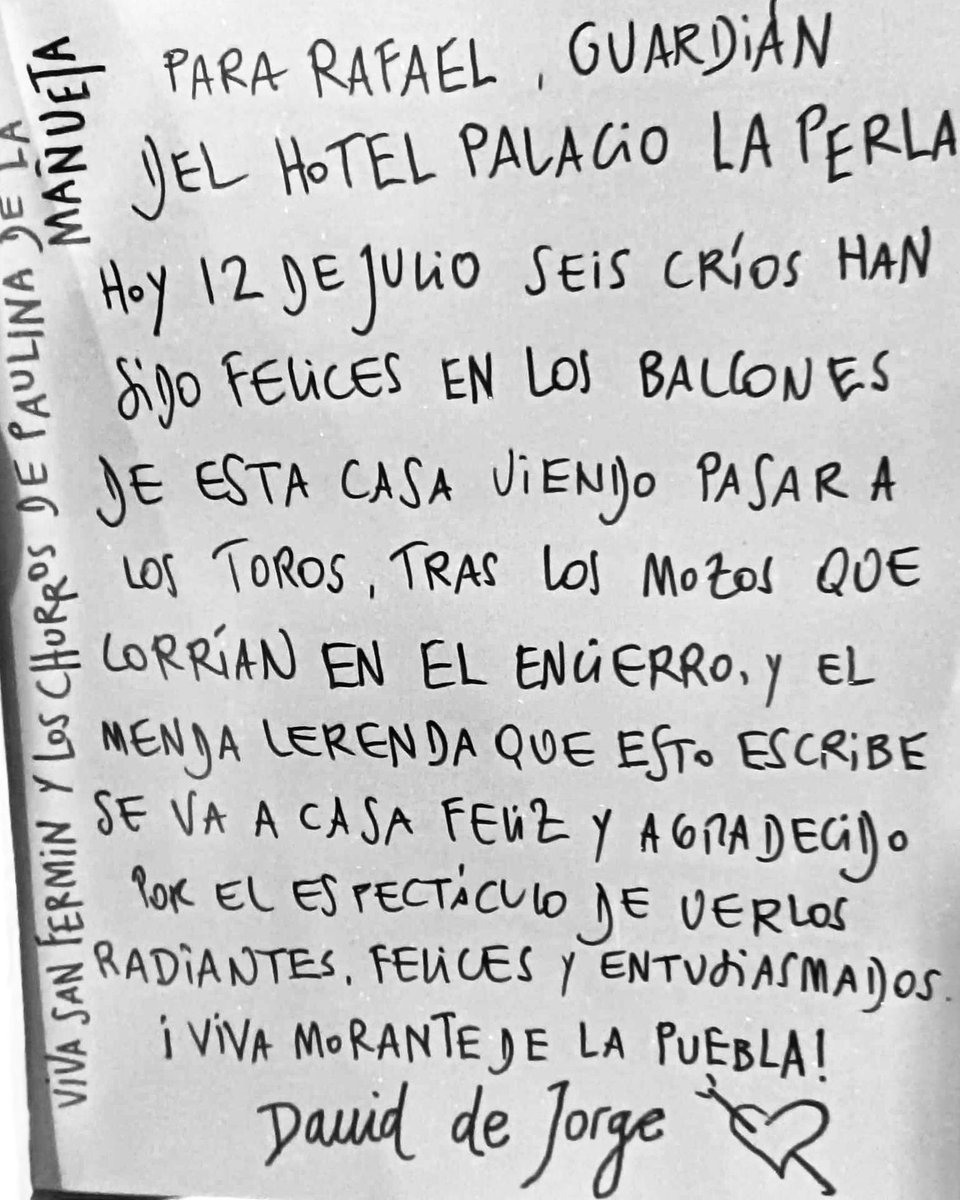 PARA RAFAEL, GUARDIÁN
DEL HOTEL PALACIO LA PERLA
HOY 12 DE JULIO SEIS CRÍOS HAN
SIDO FELICES EN LOS BALCONES
DE ESTA CASA VIENDO PASAR A
LOS TOROS, TRAS LOS MOZOS QUE
CORRÍAN EN EL ENCIERRO, Y EL
MENDA LERENDA QUE ESTO ESCRIBE
SE VA A CASA FELIZ Y AGRADECIDO
POR EL ESPECTÁCULO DE VERLOS
RADIANTES, FELICES Y ENTUDIASMADOS.
¡VIVA MORANTE DE LA PUEBLA!
David de Jorge
VIVA SAN FERMIN Y LOS CHURROS DE PAULINA DE LA
MAÑUETA